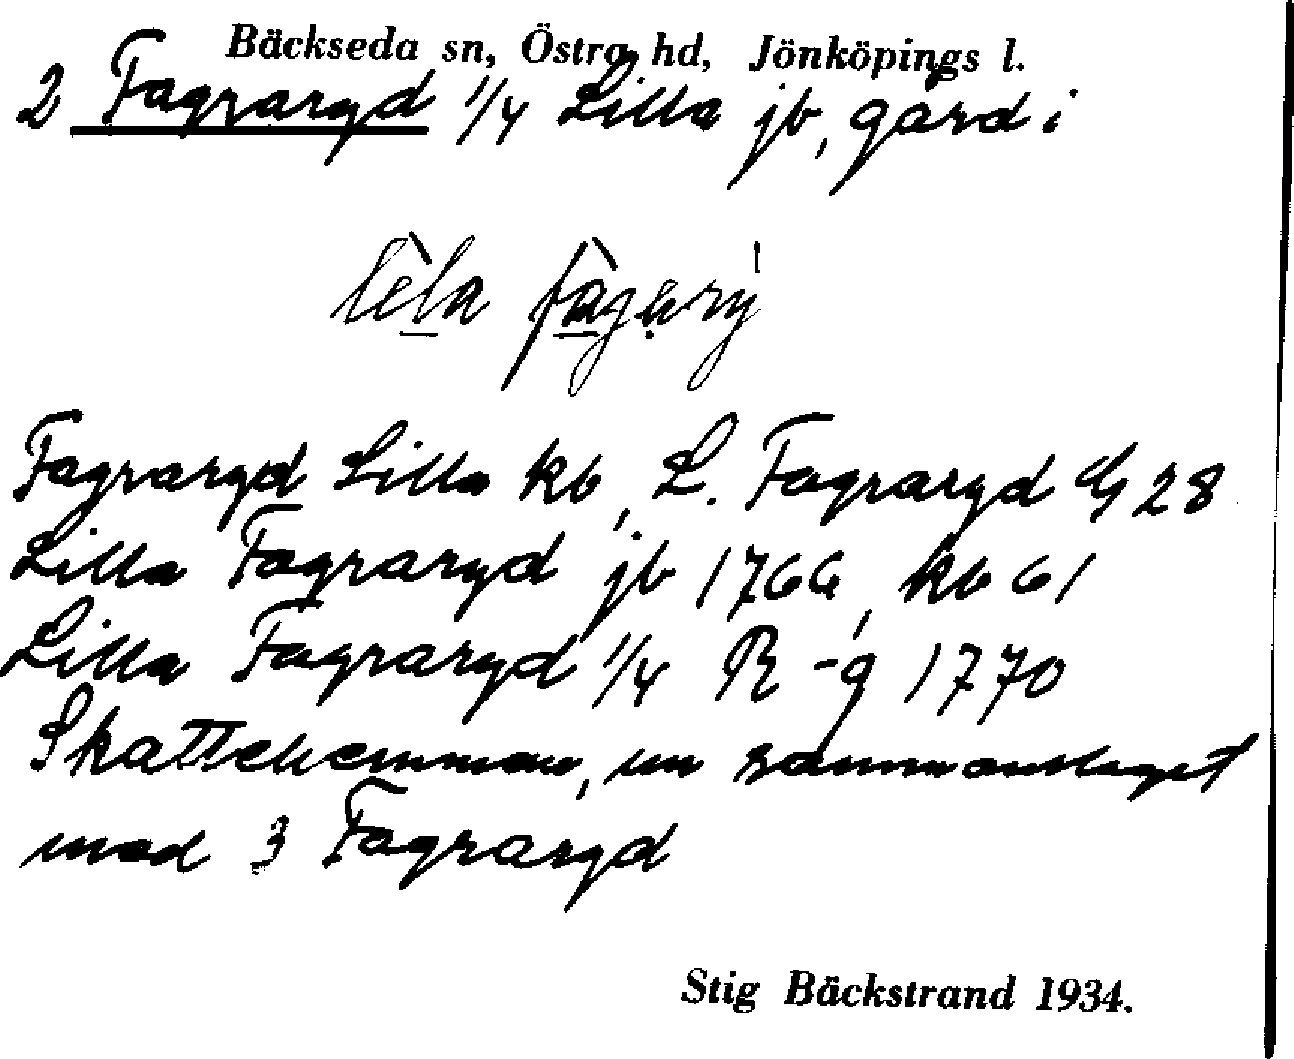 Bäckseda sn, Östra hd, Jönköpings l.
2 Fagraryd 1/4 Lilla jb, gård i
Fagraryd Lilla kb, L. Fagraryd G 28
Lilla Fagraryd jb 1766, kb 61
Lilla Fagraryd 1/4 R -g 1770
Skattehemman, nu sammanslaget
med 3 Fagraryd
Stig Bäckstrand 1934.